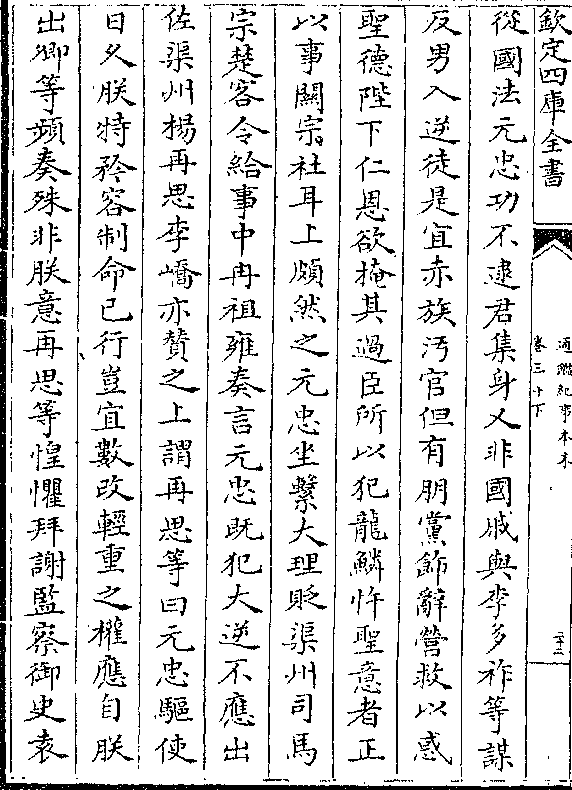 欽定四庫全書
通鑑紀事本末
卷三十下
二十三
從國法元忠功不逮君集身又非國戚與李多祚等謀
反男入逆徒是宜赤族汚官但有朋黨飾辭營救以惑
聖德陛下仁恩欲掩其過臣所以犯龍鱗忤聖意者正
以事關宗社耳上頗然之元忠坐繫大理貶渠州司馬
宗楚客令給事中冉祖雍奏言元忠既犯大逆不應出
佐渠州楊再思李嶠亦賛之上謂再思等曰元忠驅使
日久朕特矜容制命已行豈宜數改輕重之權應自朕
出卿等頻奏殊非朕意再思等惶懼拜謝監察御史袁